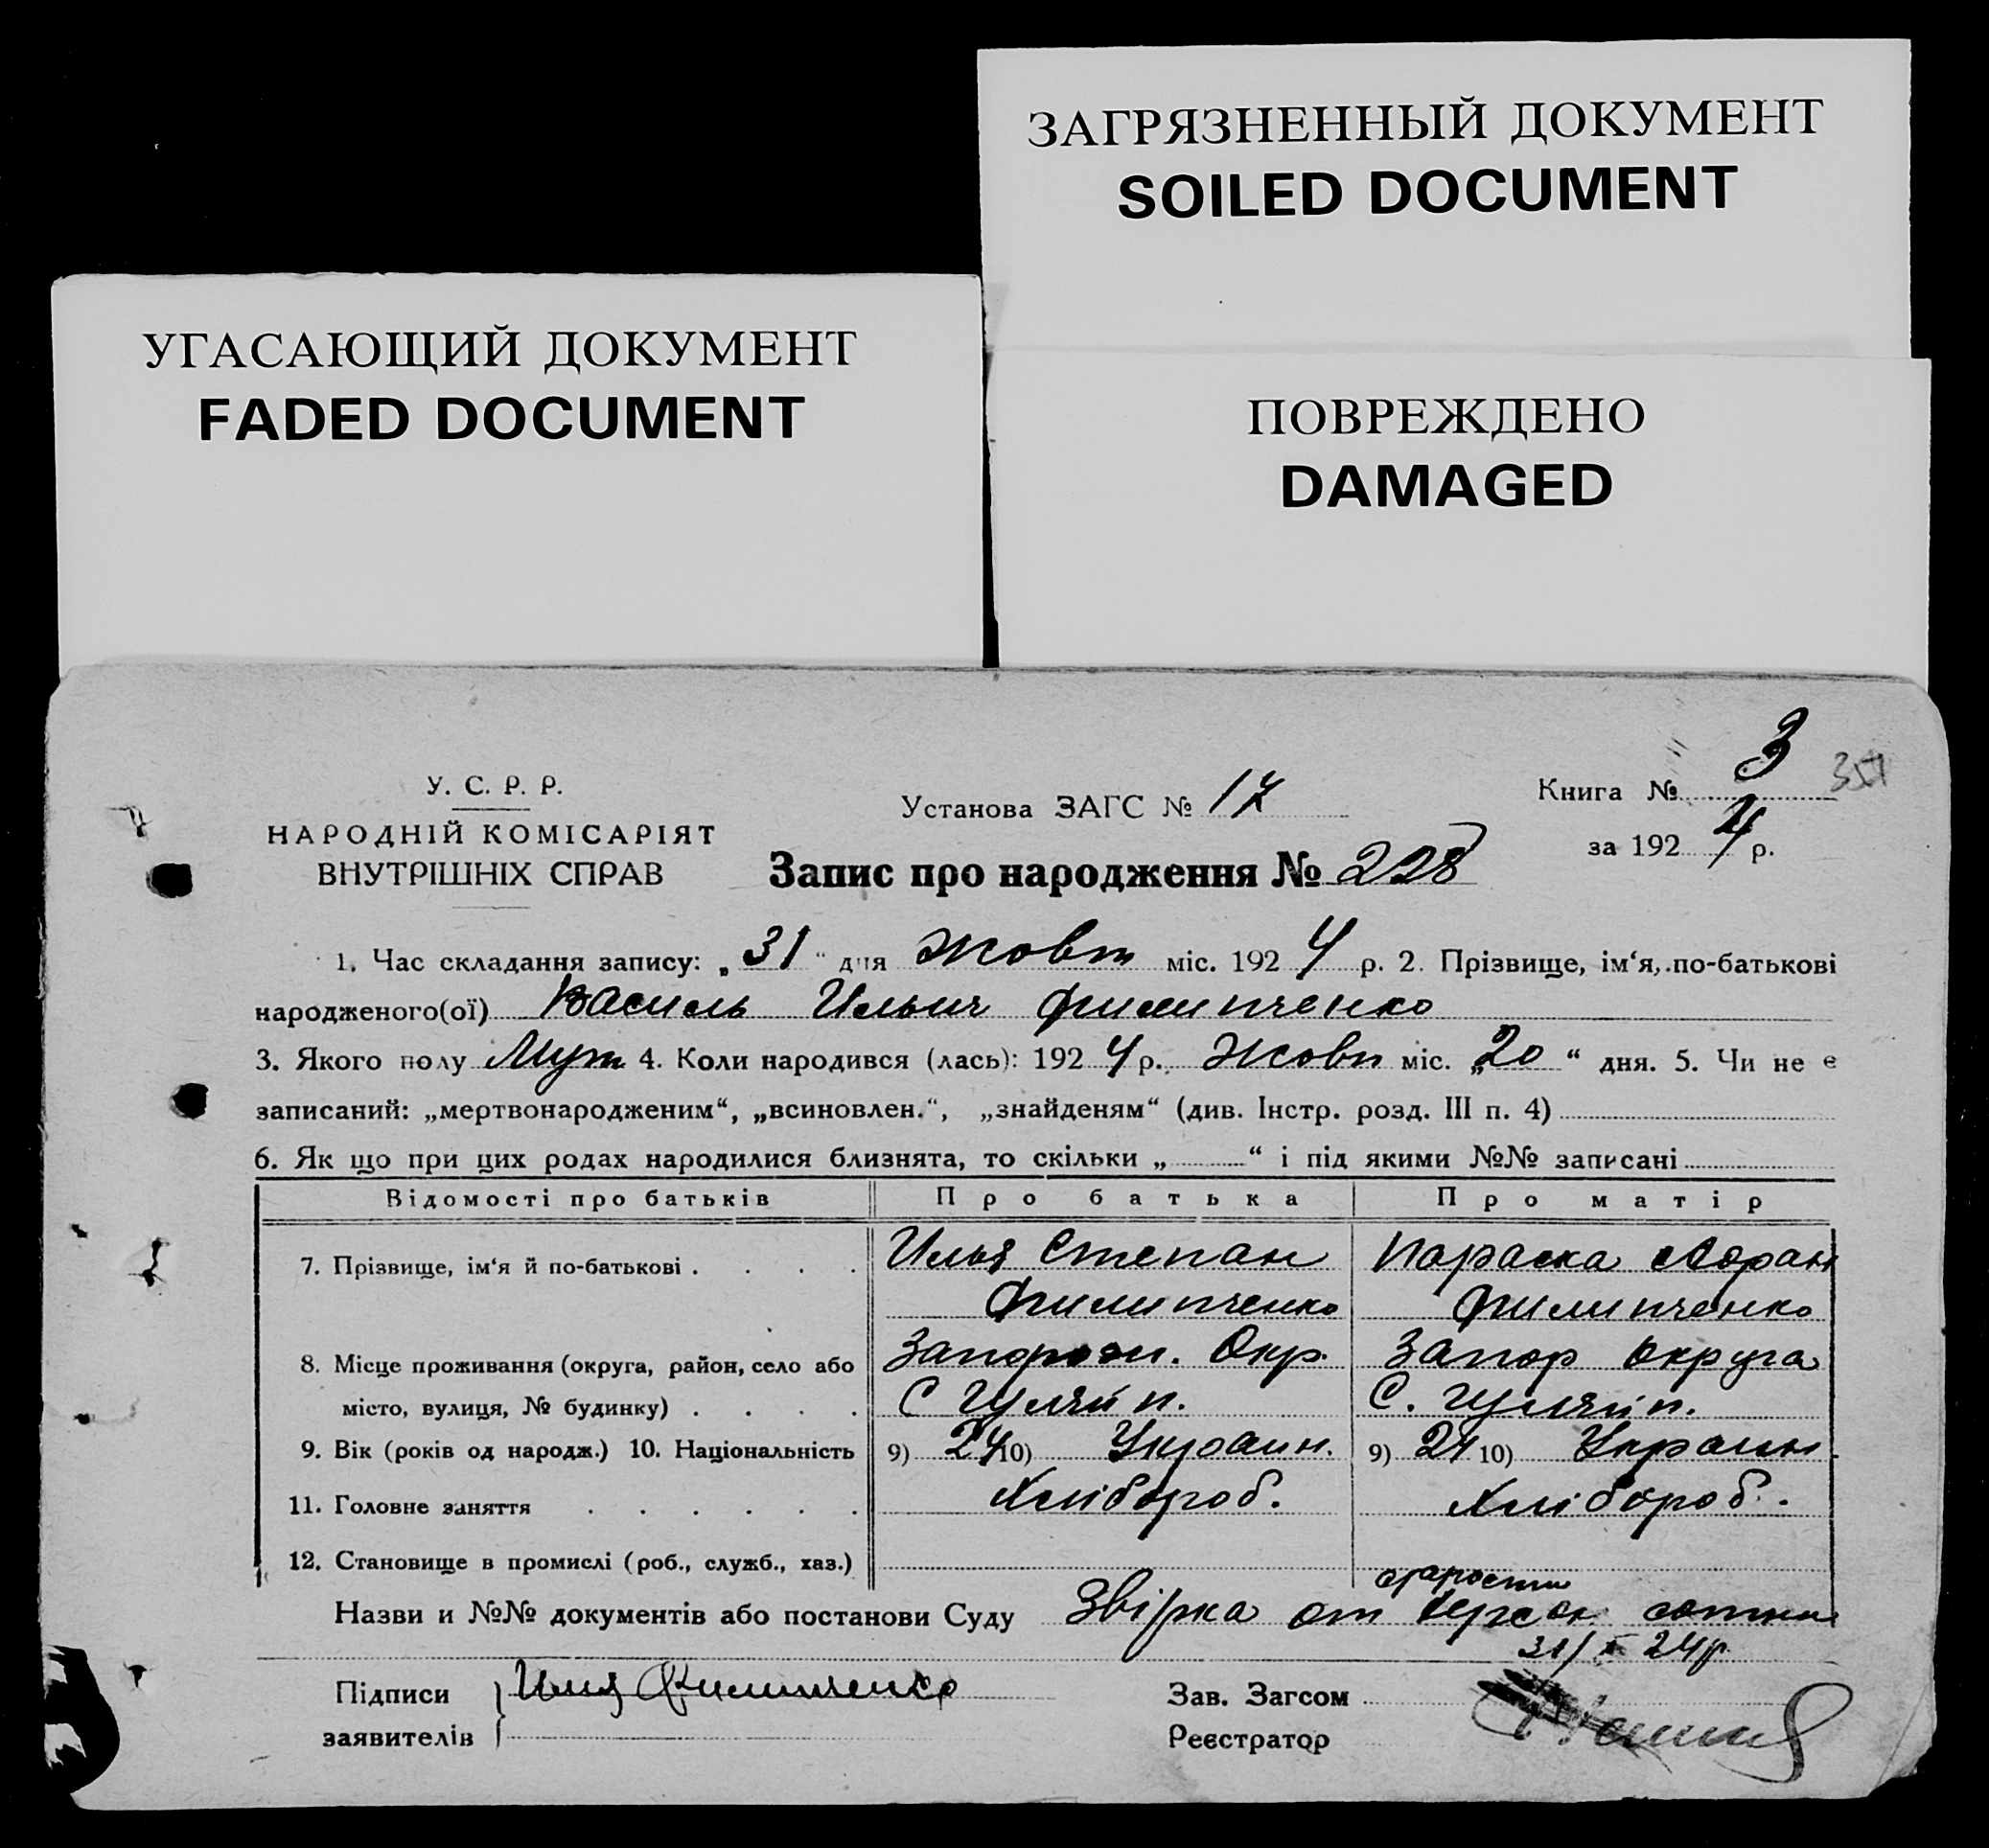 ЗАГРЯЗНЕННЫЙ ДОКУМЕНТ
SOILED DOCUMENT
УГАСАЮЩИЙ ДОКУМЕНТ
FADED DOCUMENT
ПОВРЕЖДЕНО
DAMAGED
У. С. Р. Р.
НАРОДНІЙ КОМІСАРІЯТ
ВНУТРІШНІХ СПРАВ
Установа ЗАГС № 17
Книга № 3 351
за 1924 р.
Запис про народження № 228
1. Час складання запису: „31“ дня Жовт міс. 1924 р. 2. Прізвище, ім‘я, по-батькові
народженого(ої) Василь Ильич Филипченко
3. Якого полу Муж 4. Коли народився (лась): 1924 р. Жовт міс. „20“ дня. 5. Чи не є
записаний: „мертвонародженим“, „всиновлен.“, „знайденям“ (див. Інстр. розд. III п. 4)
6. Як що при цих родах народилися близнята, то скільки „ “ і під якими №№ записані
Відомості про батьків Про батька Про матір
7. Прізвище, ім‘я й по-батькові . . . . Илья Степан Параска
Филипченко Филипченко
8. Місце проживання (округа, район, село або Запорож. Окр. Запор Округа
місто, вулиця, № будинку) . . . . С Гуляй п. С. Гуляй п.
9. Вік (років од народж.) 10. Національність 9) 24 10) Украин. 9) 24 10) Украин
11. Головне заняття . . . . . . Хлібороб. Хлібороб.
12. Становище в промислі (роб., служб., хаз.)
старости
Назви и №№ документів або постанови Суду Звірка от Херсон сотни
31/X 24р
Підписи Илля Филипченко Зав. Загсом
заявителів Реєстратор